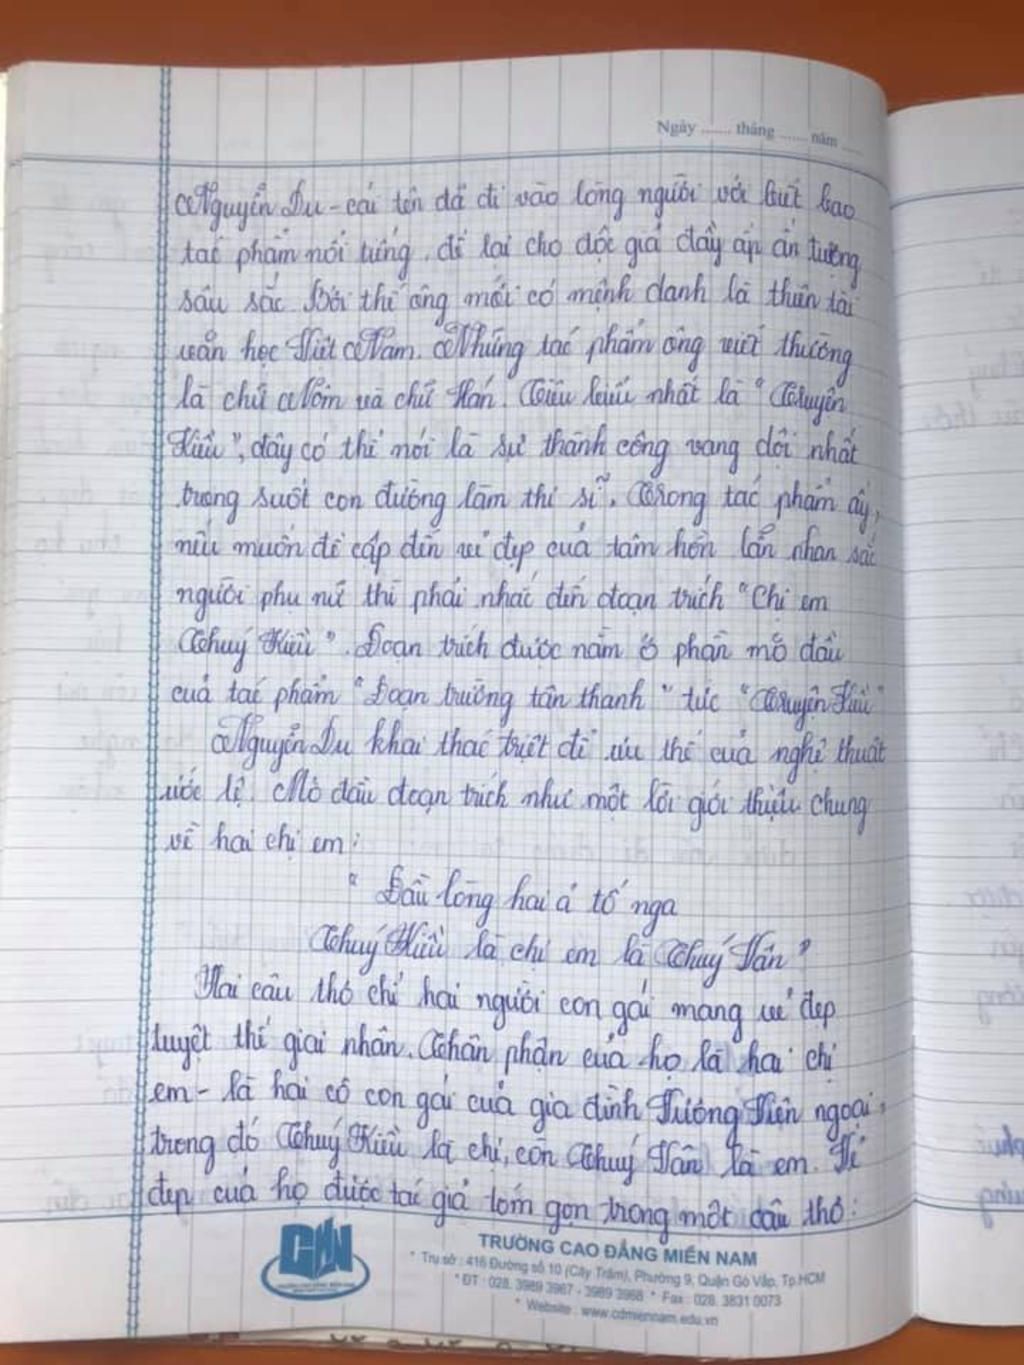 Ngày ....... tháng ....... năm .....
Nguyễn Du - cái tên đã đi vào lòng người với biết bao
tác phẩm nổi tiếng, để lại cho độc giả đầy ắp ấn tượng
sâu sắc. Bởi thế ông mới có mệnh danh là thiên tài
văn học Việt Nam. Những tác phẩm ông viết thường
là chữ Nôm và chữ Hán. Tiêu biểu nhất là "Truyện
Kiều", đây có thể nói là sự thành công vang dội nhất
trong suốt con đường làm thi sĩ. Trong tác phẩm ấy,
nếu muốn đề cập đến vẻ đẹp của tâm hồn lẫn nhan sắc
người phụ nữ thì phải nhắc đến đoạn trích "Chị em
Thuý Kiều". Đoạn trích được nằm ở phần mở đầu
của tác phẩm "Đoạn trường tân thanh" tức "Truyện Kiều"
Nguyễn Du khai thác triệt để ưu thế của nghệ thuật
ước lệ. Mở đầu đoạn trích như một lời giới thiệu chung
về hai chị em:
"Đầu lòng hai ả tố nga
Thuý Kiều là chị em là Thuý Vân"
Hai câu thơ chỉ hai người con gái mang vẻ đẹp
tuyệt thế giai nhân. Thân phận của họ là hai chị
em - là hai cô con gái của gia đình Vương Viên ngoại,
trong đó Thuý Kiều là chị, còn Thuý Vân là em. Vẻ
đẹp của họ được tác giả tóm gọn trong một câu thơ:
CMN
TRƯỜNG CAO ĐẲNG MIỀN NAM
* Trụ sở : 416 Đường số 10 (Cây Trâm), Phường 9, Quận Gò Vấp, Tp.HCM
* ĐT : 028. 3989 3967 - 3989 3968 * Fax : 028. 3831 0073
* Website : www.cdmiennam.edu.vn